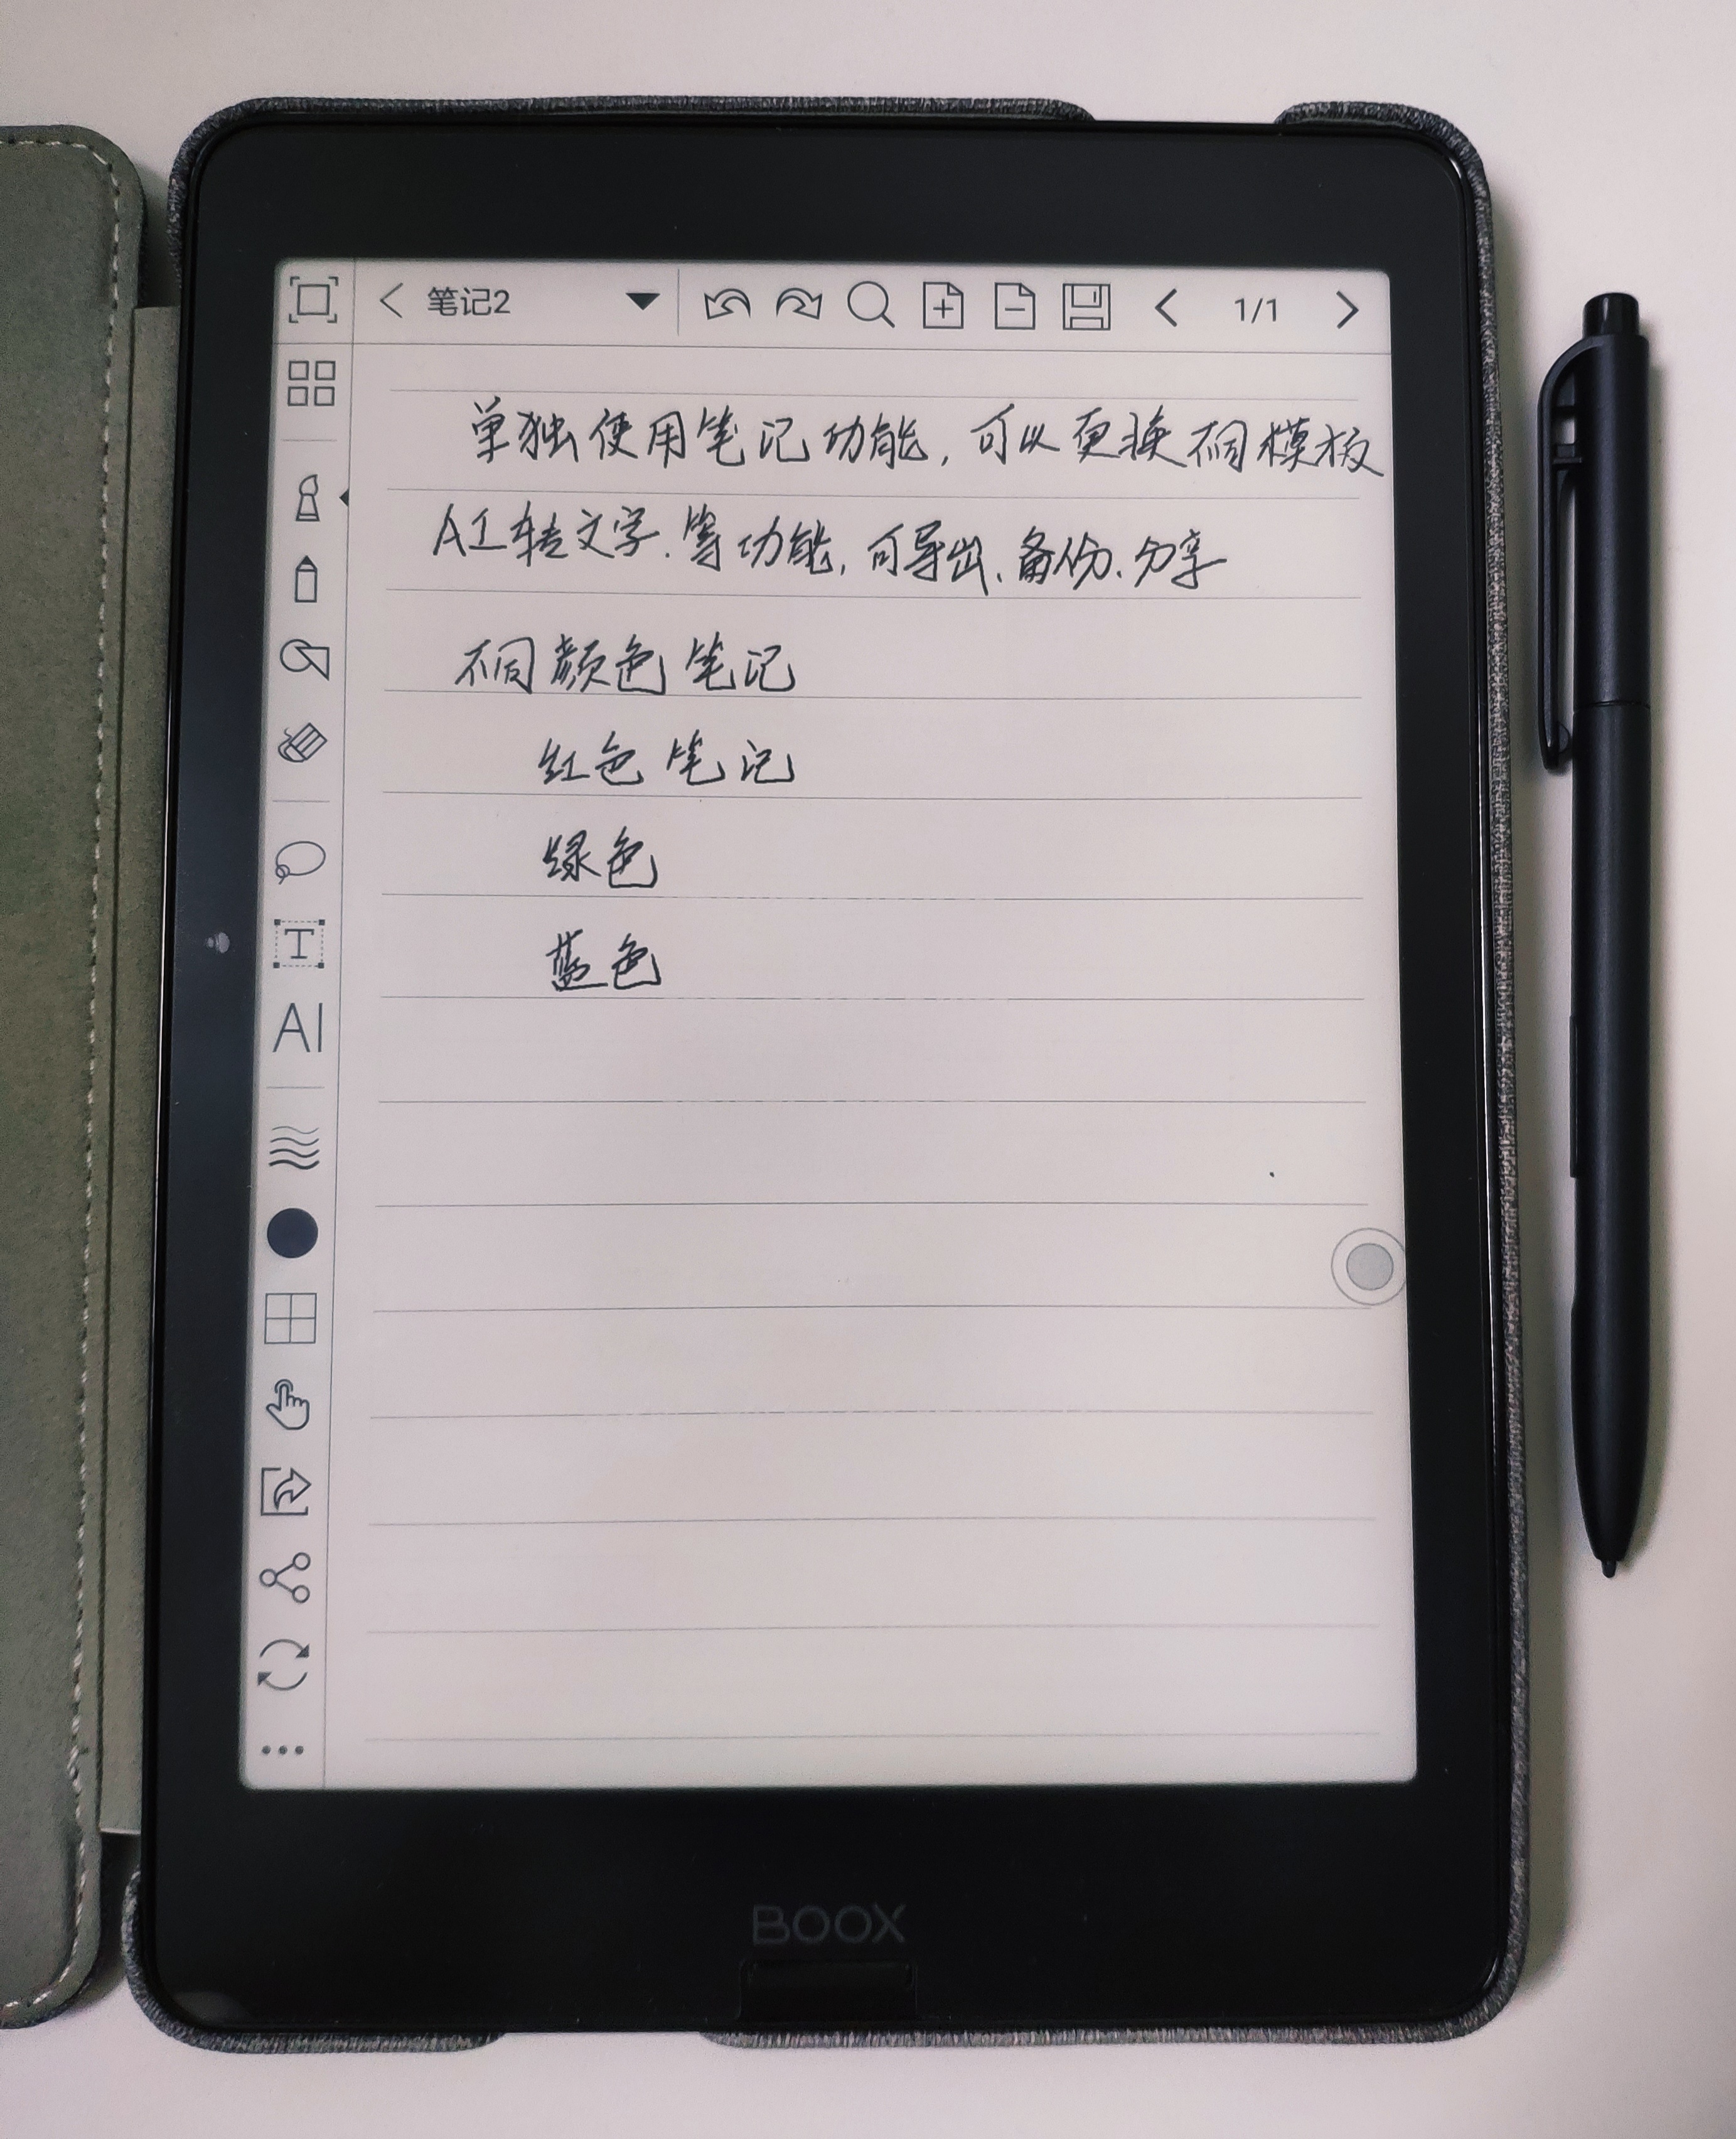 笔记2
1/1
单独使用笔记功能,可以更换不同模板
AI转文字.等功能,可导出、备份、分享
不同颜色笔记
红色笔记
绿色
蓝色
T
AI
BOOX